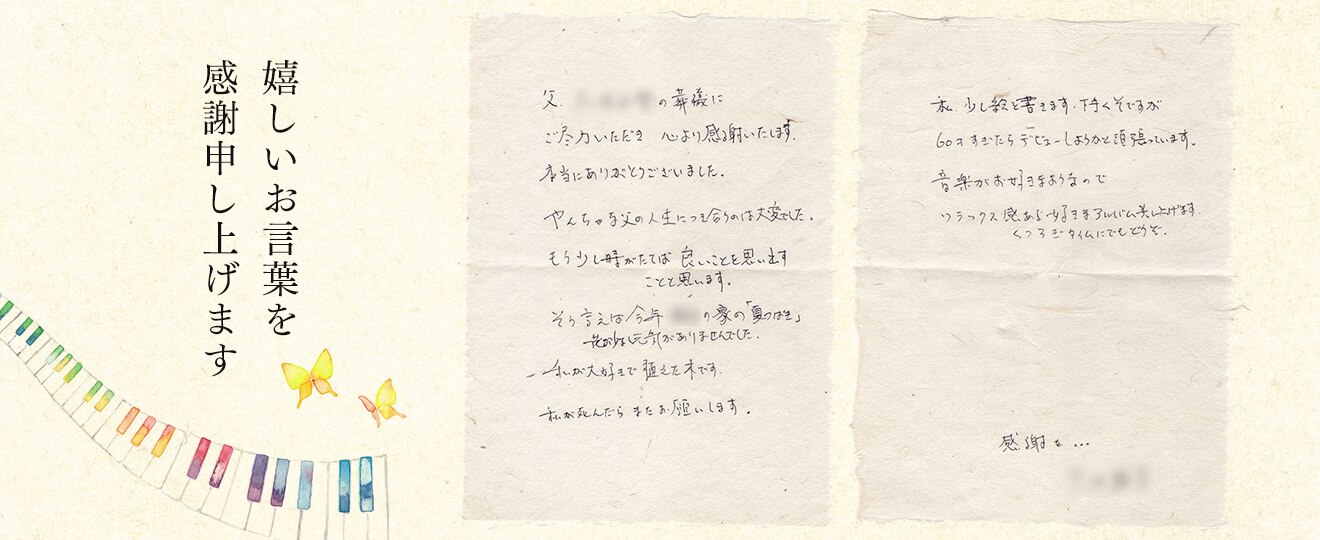 嬉しいお言葉を
感謝申し上げます
父、
の葬儀に
ご尽力いただき 心より感謝いたします。
本当にありがとうございました。
やんちゃな父の人生につき合うのは大変でした。
もう少し時がたてば 良いことを思い出す
ことと思います。
そう言えば今年 の家の「夏つばき」
花が少なく元気がありませんでした。
私が大好きで植えた木です。
私が死んだらまたお願いします。
私、少し絵を書きます。下手くそですが
60才すぎたらデビューしようかと頑張っています。
音楽がお好きなようなので
リラックス感ある好きなアルバム差し上げます。
くつろぎタイムにでもどうぞ。
感謝を…